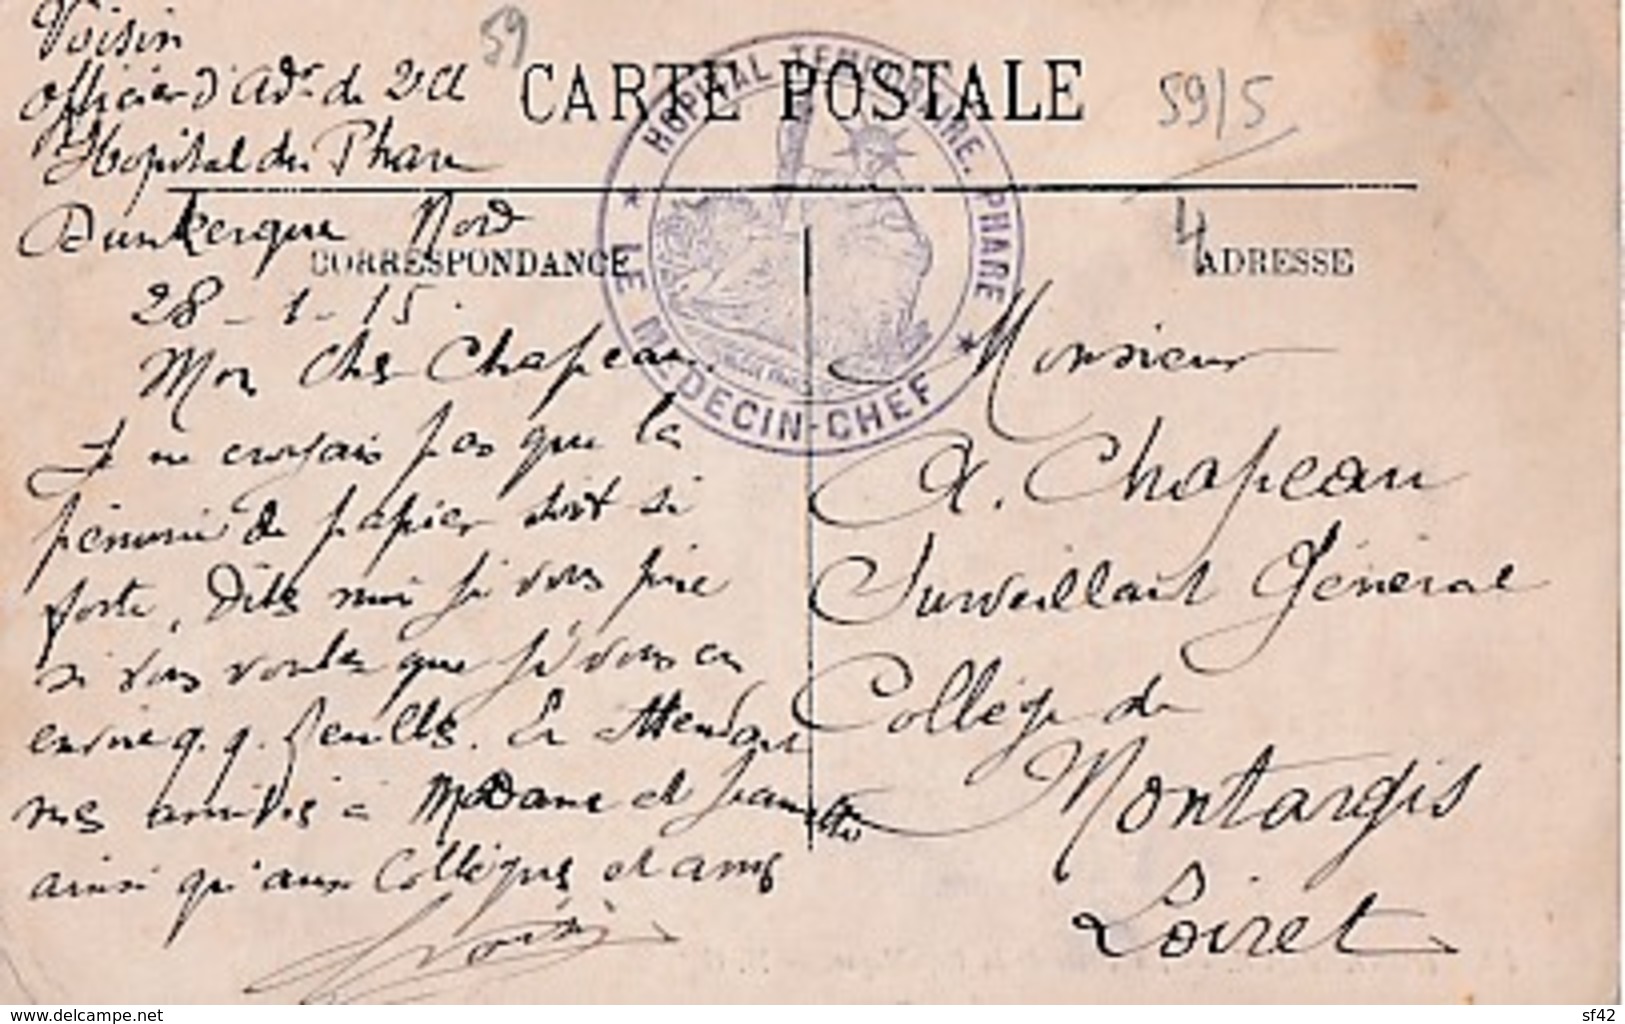 Voisin
officier d'Adon de 2e Cl
Hopital du Phare
Dunkerque Nord
59
CARTE POSTALE
59/5
4
HOPITAL TEMPORAIRE. PHARE
LE MÉDECIN-CHEF
CORRESPONDANCE
ADRESSE
28-1-15.
Mon cher Chapeau.
Je ne croyais pas que la
pénurie de papier soit si
forte, Dites moi si vous
si vous voulez que je vous en
envoie q. q. feuilles. En attendant
mes amitiés à Madame et Jeannette
ainsi qu'aux Collègues et amis
Voisin
Monsieur
A. Chapeau
Surveillant Général
Collège de
Montargis
Loiret
www.delcampe.net
sf42